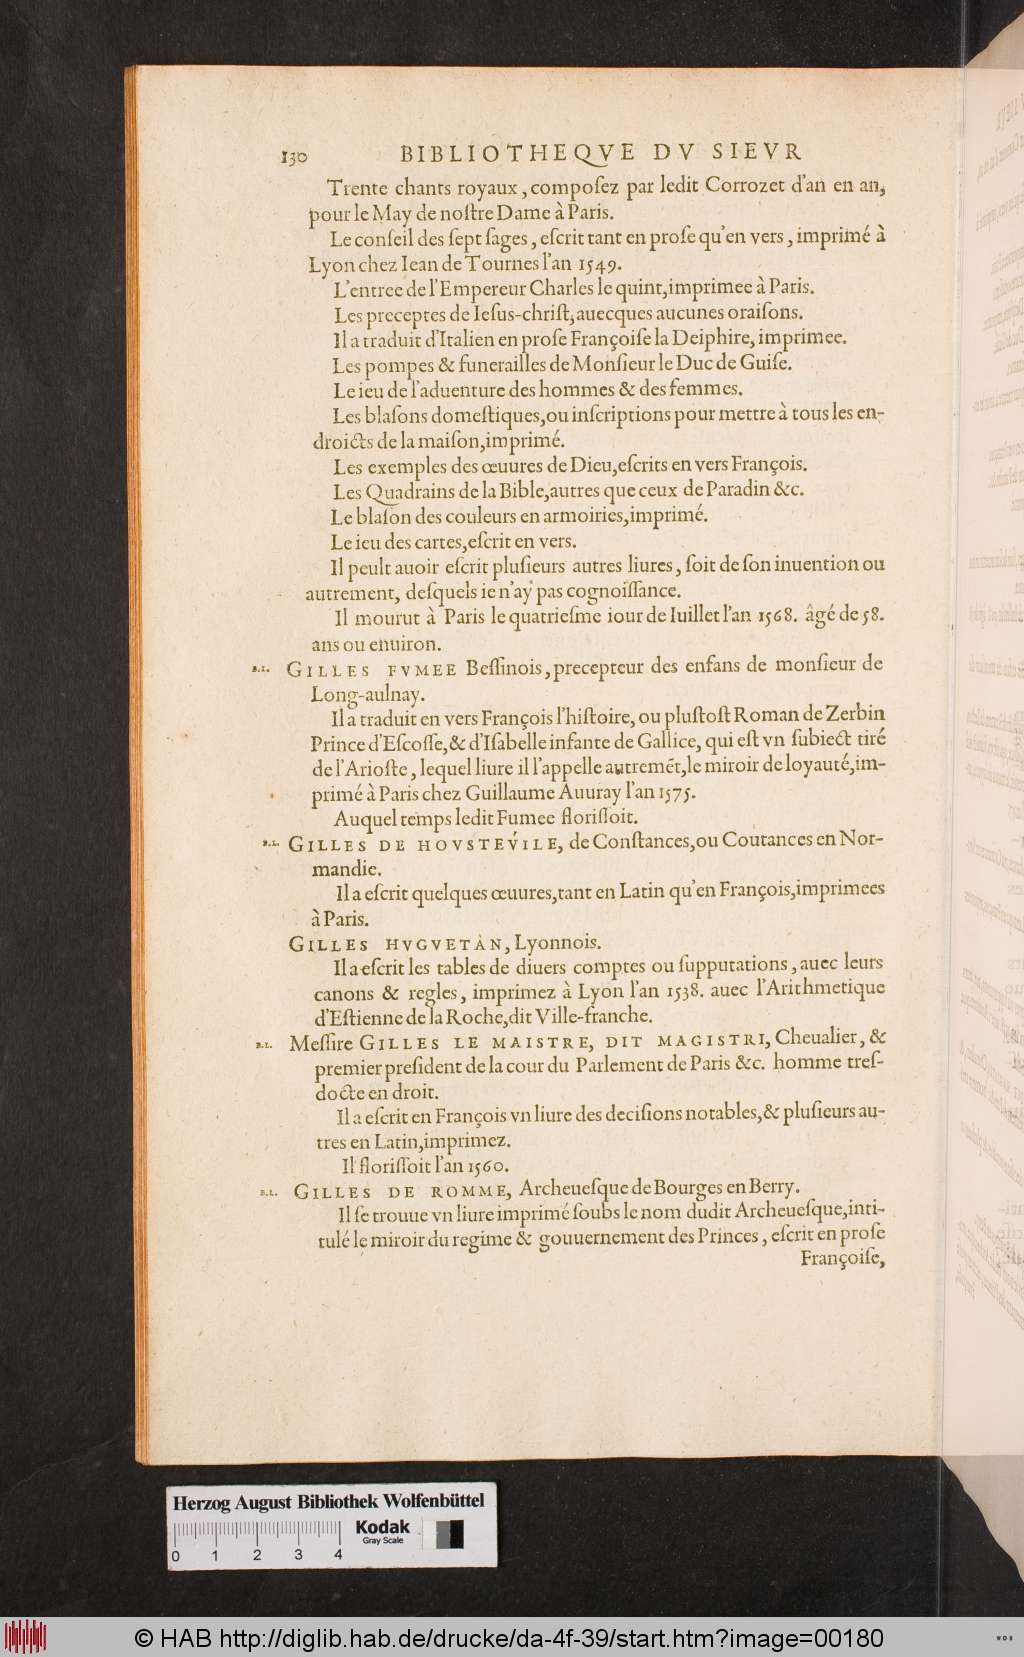 130 BIBLIOTHEQVE DV SIEVR
Trente chants royaux, compoſez par ledit Corrozet d'an en an,
pour le May de noſtre Dame à Paris.
Le conſeil des ſept ſages, eſcrit tant en proſe qu'en vers, imprimé à
Lyon chez Iean de Tournes l'an 1549.
L'entree de l'Empereur Charles le quint, imprimee à Paris.
Les preceptes de Ieſus-chriſt, auecques aucunes oraiſons.
Il a traduit d'Italien en proſe Françoiſe la Deiphire, imprimee.
Les pompes & funerailles de Monſieur le Duc de Guiſe.
Le ieu de l'aduenture des hommes & des femmes.
Les blaſons domeſtiques, ou inſcriptions pour mettre à tous les en-
droicts de la maiſon, imprimé.
Les exemples des œuures de Dieu, eſcrits en vers François.
Les Quadrains de la Bible, autres que ceux de Paradin &c.
Le blaſon des couleurs en armoiries, imprimé.
Le ieu des cartes, eſcrit en vers.
Il peult auoir eſcrit pluſieurs autres liures, ſoit de ſon inuention ou
autrement, deſquels ie n'ay pas cognoiſſance.
Il mourut à Paris le quatrieſme iour de Iuillet l'an 1568. âgé de 58.
ans ou enuiron.
B.L. GILLES FVMEE Beſſinois, precepteur des enfans de monſieur de
Long-aulnay.
Il a traduit en vers François l'hiſtoire, ou pluſtoſt Roman de Zerbin
Prince d'Eſcoſſe, & d'Iſabelle infante de Gallice, qui eſt vn ſubiect tiré
de l'Arioſte, lequel liure il l'appelle autremẽt, le miroir de loyauté, im-
primé à Paris chez Guillaume Auuray l'an 1575.
Auquel temps ledit Fumee floriſſoit.
B.L. GILLES DE HOVSTEVILE, de Conſtances, ou Coutances en Nor-
mandie.
Il a eſcrit quelques œuures, tant en Latin qu'en François, imprimees
à Paris.
GILLES HVGVETAN, Lyonnois.
Il a eſcrit les tables de diuers comptes ou ſupputations, auec leurs
canons & regles, imprimez à Lyon l'an 1538. auec l'Arithmetique
d'Eſtienne de la Roche, dit Ville-franche.
B.L. Meſſire GILLES LE MAISTRE, DIT MAGISTRI, Cheualier, &
premier preſident de la cour du Parlement de Paris &c. homme treſ-
docte en droit.
Il a eſcrit en François vn liure des deciſions notables, & pluſieurs au-
tres en Latin, imprimez.
Il floriſſoit l'an 1560.
B.L. GILLES DE ROMME, Archeueſque de Bourges en Berry.
Il ſe trouue vn liure imprimé ſoubs le nom dudit Archeueſque, inti-
tulé le miroir du regime & gouuernement des Princes, eſcrit en proſe
Françoiſe,
Herzog August Bibliothek Wolfenbüttel
Kodak
Gray Scale
0 1 2 3 4
© HAB http://diglib.hab.de/drucke/da-4f-39/start.htm?image=00180